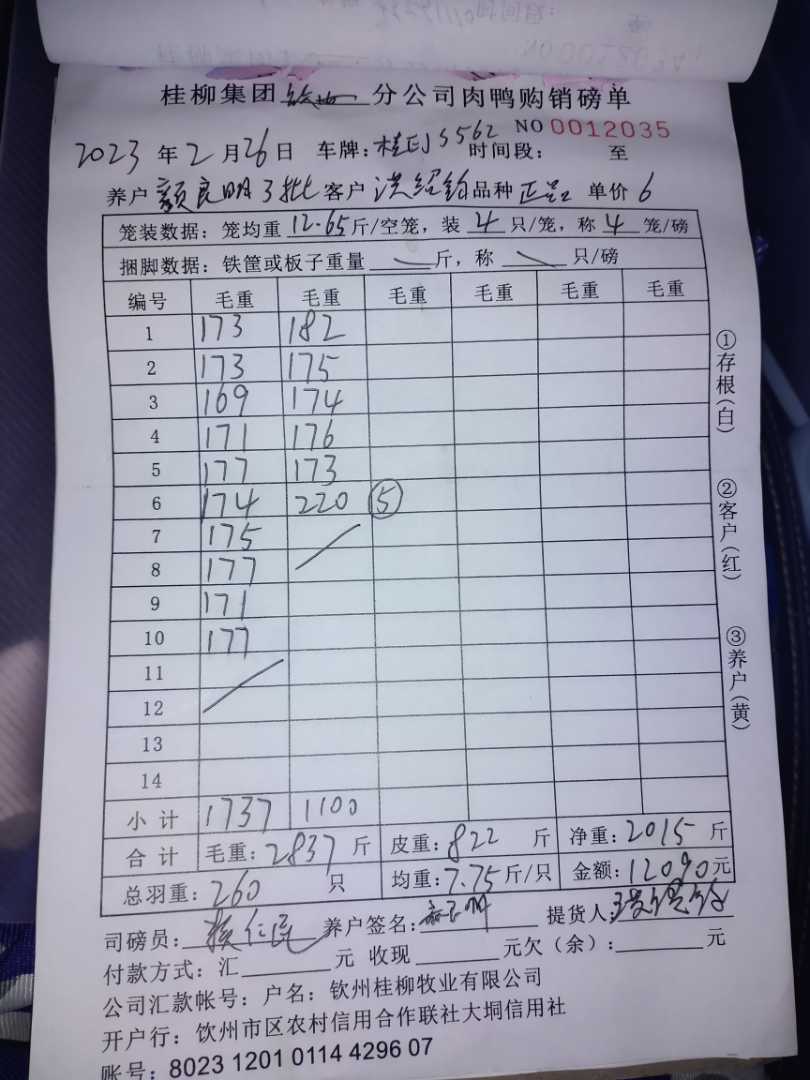 桂柳集团钦州分公司肉鸭购销磅单
NO 0012035
2023年2月26日 车牌：桂EJS562 时间段： 至
养户 颜良明3批 客户 洪绍 品种 正品 单价 6
笼装数据：笼均重 12.65 斤/空笼，装 4 只/笼，称 4 笼/磅
捆脚数据：铁筐或板子重量 斤，称 只/磅
编号 毛重 毛重 毛重 毛重 毛重 毛重
1 173 182
2 173 175
3 169 174
4 171 176
5 177 173
6 174 220 ⑤
7 175
8 177
9 171
10 177
11
12
13
14
小计 1737 1100
合计 毛重：2837 斤 皮重：822 斤 净重：2015 斤
总羽重：260 只 均重：7.75 斤/只 金额：12090 元
司磅员： 养户签名： 提货人：
付款方式：汇 元 收现 元欠（余）： 元
公司汇款帐号：户名：钦州桂柳牧业有限公司
开户行：钦州市区农村信用合作联社大垌信用社
账号：8023 1201 0114 4296 07
①存根（白）
②客户（红）
③养户（黄）